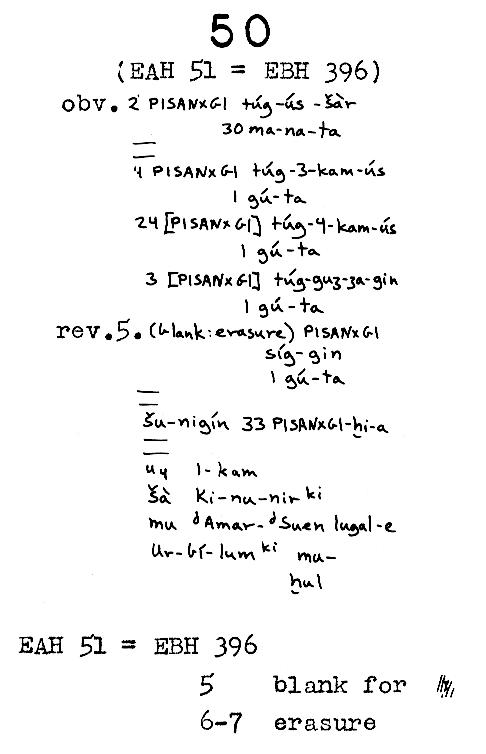 50
(EAH 51 = EBH 396)
obv. 2 PISANxGI túg-ús-šàr
30 ma-na-ta
4 PISANxGI túg-3-kam-ús
1 gú-ta
24 [PISANxGI] túg-4-kam-ús
1 gú-ta
3 [PISANxGI] túg-guz-za-gin
1 gú-ta
rev.5. (blank: erasure) PISANxGI
síg-gin
1 gú-ta
šu-nigín 33 PISANxGI-ḫi-a
u₄ 1-kam
šà Ki-nu-nir ki
mu dAmar-dSuen lugal-e
Ur-bí-lum ki mu-
ḫul
EAH 51 = EBH 396
5 blank for
6-7 erasure